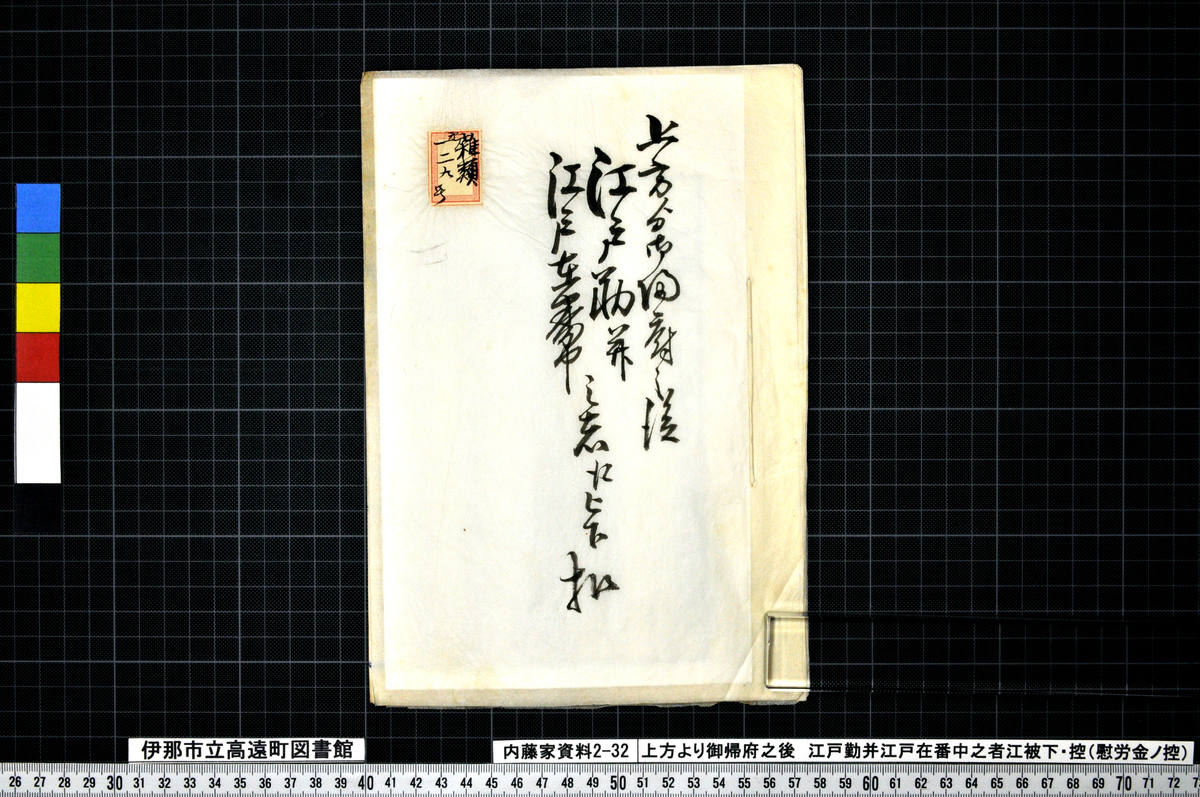 上方ゟ御帰府之後
江戸勤并
江戸在番中
之者江被下
扣
雑類
一二九号
伊那市立高遠町図書館
内藤家資料2-32 上方より御帰府之後 江戸勤并江戸在番中之者江被下・控(慰労金ノ控)
26 27 28 29 30 31 32 33 34 35 36 37 38 39 40 41 42 43 44 45 46 47 48 49 50 51 52 53 54 55 56 57 58 59 60 61 62 63 64 65 66 67 68 69 70 71 72